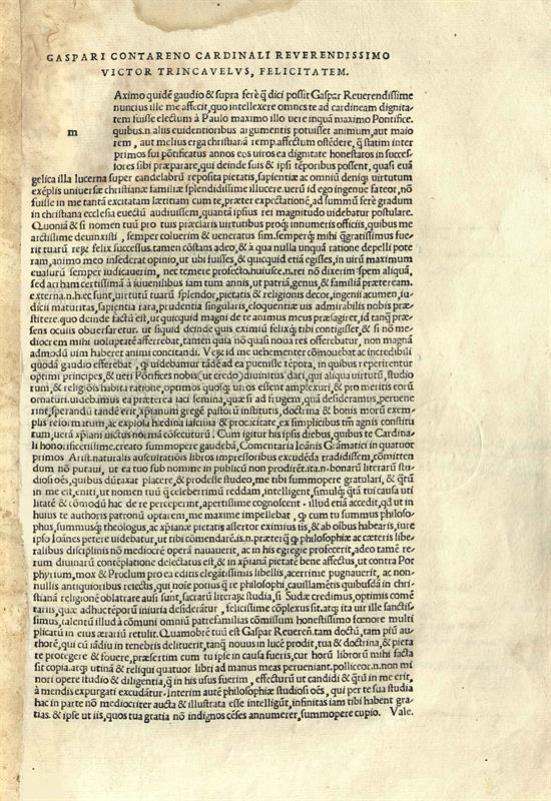 GASPARI CONTARENO CARDINALI REVERENDISSIMO
VICTOR TRINCAVELVS, FELICITATEM.
m
Aximo quidẽ gaudio & supra ferè q̃ dici possit Gaspar Reuerendissime
nuncius ille me affecit, quo intellexere omnes te ad cardineam dignita-
tem fuisse electum à Paulo maximo illo uere inquã maximo Pontifice.
quibus.n.aliis euidentioribus argumentis potuisset animum, aut maio
rem, aut melius erga christianã remp. affectum ostẽdere, q̃ statim inter
primos sui põtificatus annos eos uiros ea dignitate honestatos in succes-
sores sibi præparare, qui deinde suis & ipsi tẽporibus possent, quasi euã
gelica illa lucerna super candelabrũ reposita pietatis, sapientiæ ac omniũ deniq; uirtutum
exẽplis uniuersæ christianæ familiæ splendidissime illucere. uerũ id ego ingenue fateor, nõ
fuisse in me tantã excitatam lætitiam cum te, præter expectationẽ, ad summũ ferè gradum
in christiana ecclesia euectũ audiuissem, quantã ipsius rei magnitudo uidebatur postulare.
Quoniã & si nomen tuũ pro tuis præclaris uirtutibus proq; innumeris officiis, quibus me
arctissime deuinxisti, semper coluerim & ueneratus sim. semperq; mihi q̃ gratissimus fue-
rit uarii regi felix successus. tamen cõstans adeo, & a qua nulla unquã ratione depelli pote
ram, animo meo insederat opinio, ut ubi fuisses, & quicquid etiã egisses, in uirũ maximum
euasurũ semper iudicauerim, nec temere profecto. huiusce.n.rei nõ dixerim spem aliquã,
sed arrham certissimã à iuuenilibus iam tum annis, ut patriã, genus, & familiã præteream.
externa.n.hæc sunt, uirtutũ tuarũ splendor, pietatis & religionis decor, ingenii acumen, iu-
dicii maturitas, sapientia rara, prudentia singularis, eloquentiæ uis admirabilis nobis præ-
stitere. quo deinde factũ est, ut quicquid magni de te animus meus præsagiret, id tanq̃ præ-
sens oculis obuersaretur. ut siquid deinde quis eximiũ felixq; tibi contigisset, & si nõ me-
diocrem mihi uoluptatẽ afferrebat, tamen quia nõ quasi noua res offerebatur, non magnã
admodũ uim haberet animi concitandi. Verũ id me uehementer cõmouebat ac incredibili
quodã gaudio efferebat, q̃ uidebamus tãdẽ ad ea puenisse tẽpora, in quibus reperirentur
optimi principes, & ueri Põtifices nobis (ut credo) diuinitus dati, qui aliqua uirtutũ, studio
rum, & religiõis habita ratione, optimos quosq; uiros essent amplexuri, & pro meritis eorũ
ornaturi. uidebimus ea præterea iaci semina, quæ si ad frugem, quã desideramus, peruene
rint, sperandũ tandẽ erit, xpianum gregẽ pastorũ institutis, doctrina & bonis morũ exem-
plis reformatum, ac explosa hædina lasciuia & procacitate, ex simplicibus tm̃ agnis constitu
tum, uerã xpiani iuctus normã cõsecuturũ. Cum igitur his ipsis diebus, quibus te Cardina-
li honorificẽtissime. creato summopere gaudebã, Comentaria Ioãnis Grãmatici in quatuor
primos Arist. naturalis auscultatiõis libros impressoribus excudẽda tradidissem, cõmitten
dum nõ putaui, ut ea tuo sub nomine in publicũ non prodirẽt. ita.n.bonarũ literarũ stu-
diosi oẽs, quibus dũtaxat placere, & prodesse studeo, me tibi summopere gratulari, & q̃tũ
in me erit, eniti, ut nomen tuũ q̃ celeberrimũ reddam, intelligent, simulq; q̃tã tui causa uti
litatẽ & cõmodũ hac de re perceperint, apertissime cognoscent. illud etiã accedit, qd ut in
huius te authoris patronũ optarem, me maxime impellebat, q̃ cum tu summus philoso-
phus, summusq; theologus, ac xpianæ pietatis assertor eximius sis, & ab oĩbus habearis, iure
ipso Ioanes petere uidebatur, ut tibi cõmendaret. is.n.præterq̃ q̃ philosophiæ ac cæteris libe
ralibus disciplinis nõ mediocrẽ operã nauauerit, ac in his egregie profecerit, adeo tamẽ re-
rum diuinarũ contẽplatione delectatus est, & in xpianã pietatẽ bene affectus, ut contra Por
phyrium, mox & Proclum pro ea editis elegãtissimis libellis, acerrime pugnauerit, ac non-
nullis antiquioribus reiectis, qui noĩe potius q̃ re philosophi, cauillamẽtis quibusdã in chri-
stianã religionẽ oblatrare ausi sunt, sacrarũ literarũ studia, si Sudæ credimus, optimis comẽ
tariis, quæ adhuc tẽporũ iniuria desiderãtur, felicissime cõplexus sit. atq; ita uir ille sanctis-
simus, talentũ illud à cõmuni omniũ patrefamilias cõmissum honestissimo fœnore multi
plicatũ in eius ærariũ retulit. Quamobrẽ tuũ est Gaspar Reuerẽn. tam doctũ, tam piũ au-
thorẽ, qui cũ iãdiu in tenebris delituerit, tanq̃ nouus in lucẽ prodit, tua & doctrina, & pieta
te protegere & fouere, præsertim cum tu ipse in causa fueris, cur horũ librorũ mihi facta
sit copia. atq; utinã & reliqui quatuor libri ad manus meas perueniant. polliceor.n.non mi
nori opere studio & diligentia, q̃ in his usus fuerim, effecturũ ut candidi & q̃tũ in me erit,
à mendis expurgati excudãtur. Interim autẽ philosophiæ studiosi oẽs, qui per te sua studia
hac in parte nõ mediocriter aucta & illustrata esse intelligũt, infinitas iam tibi habent gra-
tias. & ipse ut iis, quos tua gratia nõ indignos cẽses annumerer, summopere cupio. Vale.